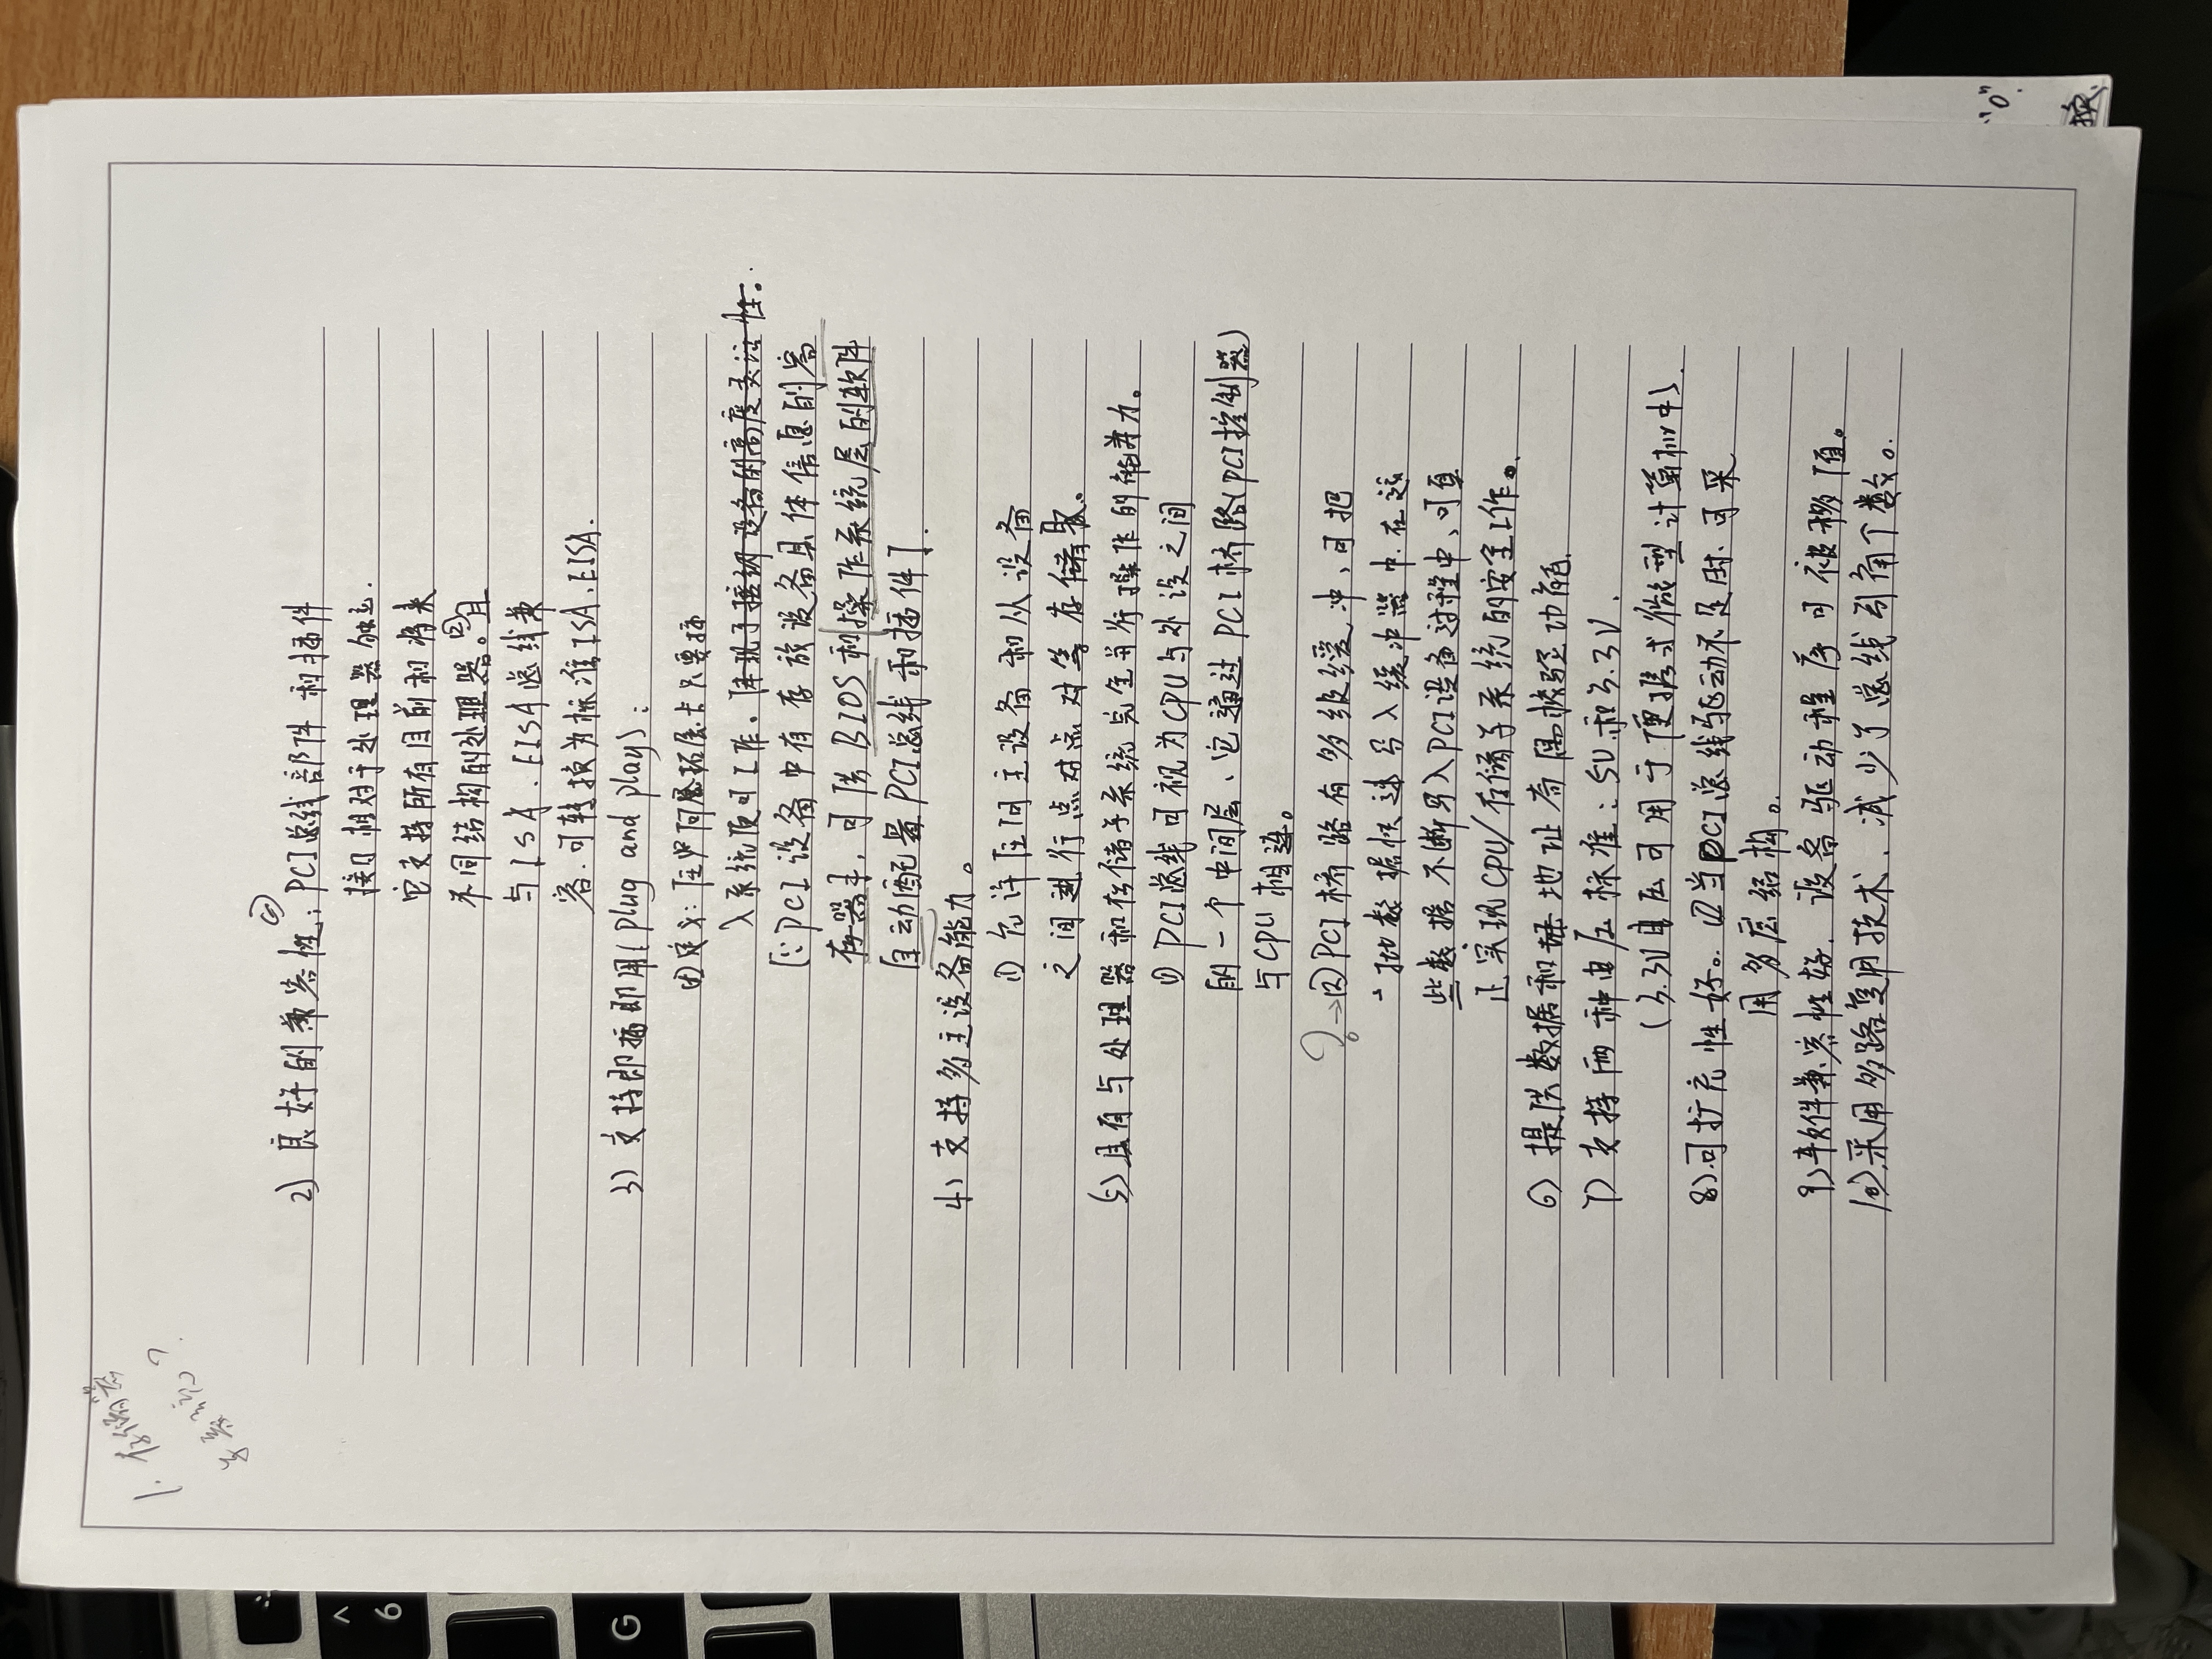 1. 存储器
子系统?
2) 良好的兼容性: ① PCI总线部件和插件
接口相对于处理器独立.
它支持所有目前和将来
不同结构的处理器。②且
与ISA、EISA总线兼
容.可转换为标准ISA、EISA.
3) 支持即插即用(plug and play):
①定义: 任何拓展卡只要插
入系统便可工作。体现了接纳设备的高度灵活性。
[∵PCI设备中有存放设备具体信息的寄
存器, 可供BIOS和操作系统层的软件
自动配置PCI总线和插件].
4) 支持多主设备能力。
① 允许任何主设备和从设备
之间进行点对点对等存取。
5) 具有与处理器和存储子系统完全并行操作的能力。
① PCI总线可视为CPU与外设之间
的一个中间层、它通过PCI桥路(PCI控制器)
与CPU相连。
?→②PCI桥路有多级缓冲,可把
一批数据快速写入缓冲器中.在这
些数据不断写入PCI设备过程中,可真
正实现CPU/存储子系统的安全工作。
6) 提供数据和地址奇偶校验功能.
7) 支持两种电压标准: 5V和3.3V.
(3.3V电压可用于便携式微型计算机中).
8).可扩充性好。①当PCI总线驱动不足时.可采
用多层结构。
9)软件兼容性好. 设备驱动程序可被移值。
10).采用多路复用技术.减少了总线引角个数。
"0".
换.